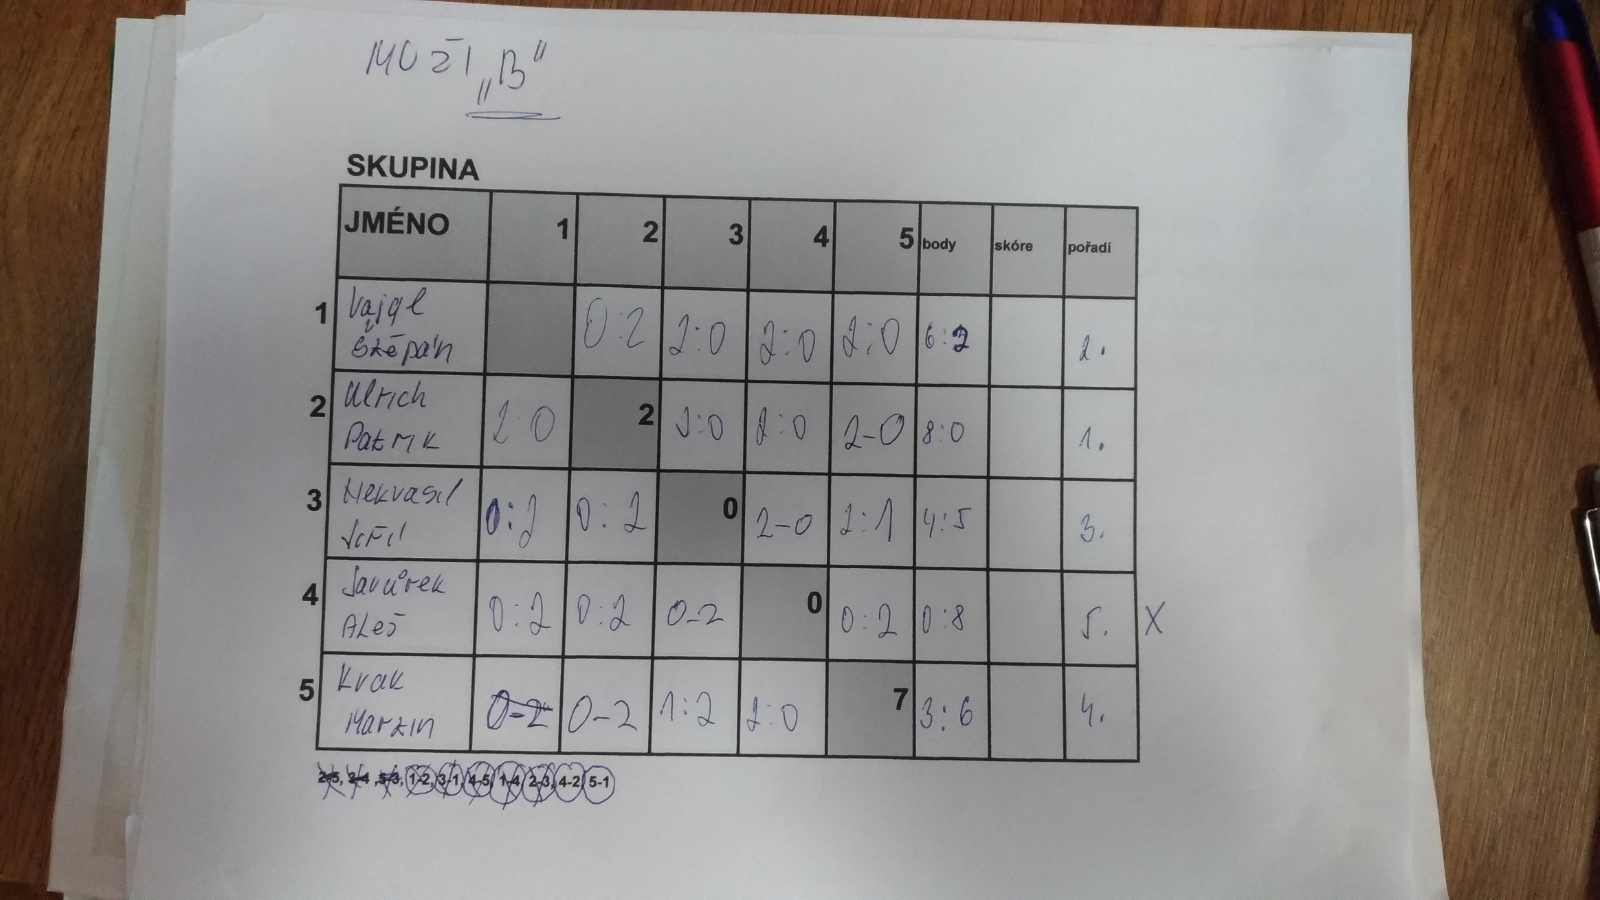 MUŽI „B"
SKUPINA
JMÉNO 1 2 3 4 5 body skóre pořadí
1 Vajgl Štěpán 0:2 2:0 2:0 2:0 6:2 2.
2 Ulrich Patrik 2:0 2 2:0 2:0 2-0 8:0 1.
3 Nekvasil Jiří 0:2 0:2 0 2-0 2:1 4:5 3.
4 Javůrek Aleš 0:2 0:2 0-2 0 0:2 0:8 5. X
5 Kvak Martin 0-2 0-2 1:2 2:0 7 3:6 4.
2-5, 3-4, 5-3, 1-2, 3-1, 4-5, 1-4, 2-3, 4-2, 5-1